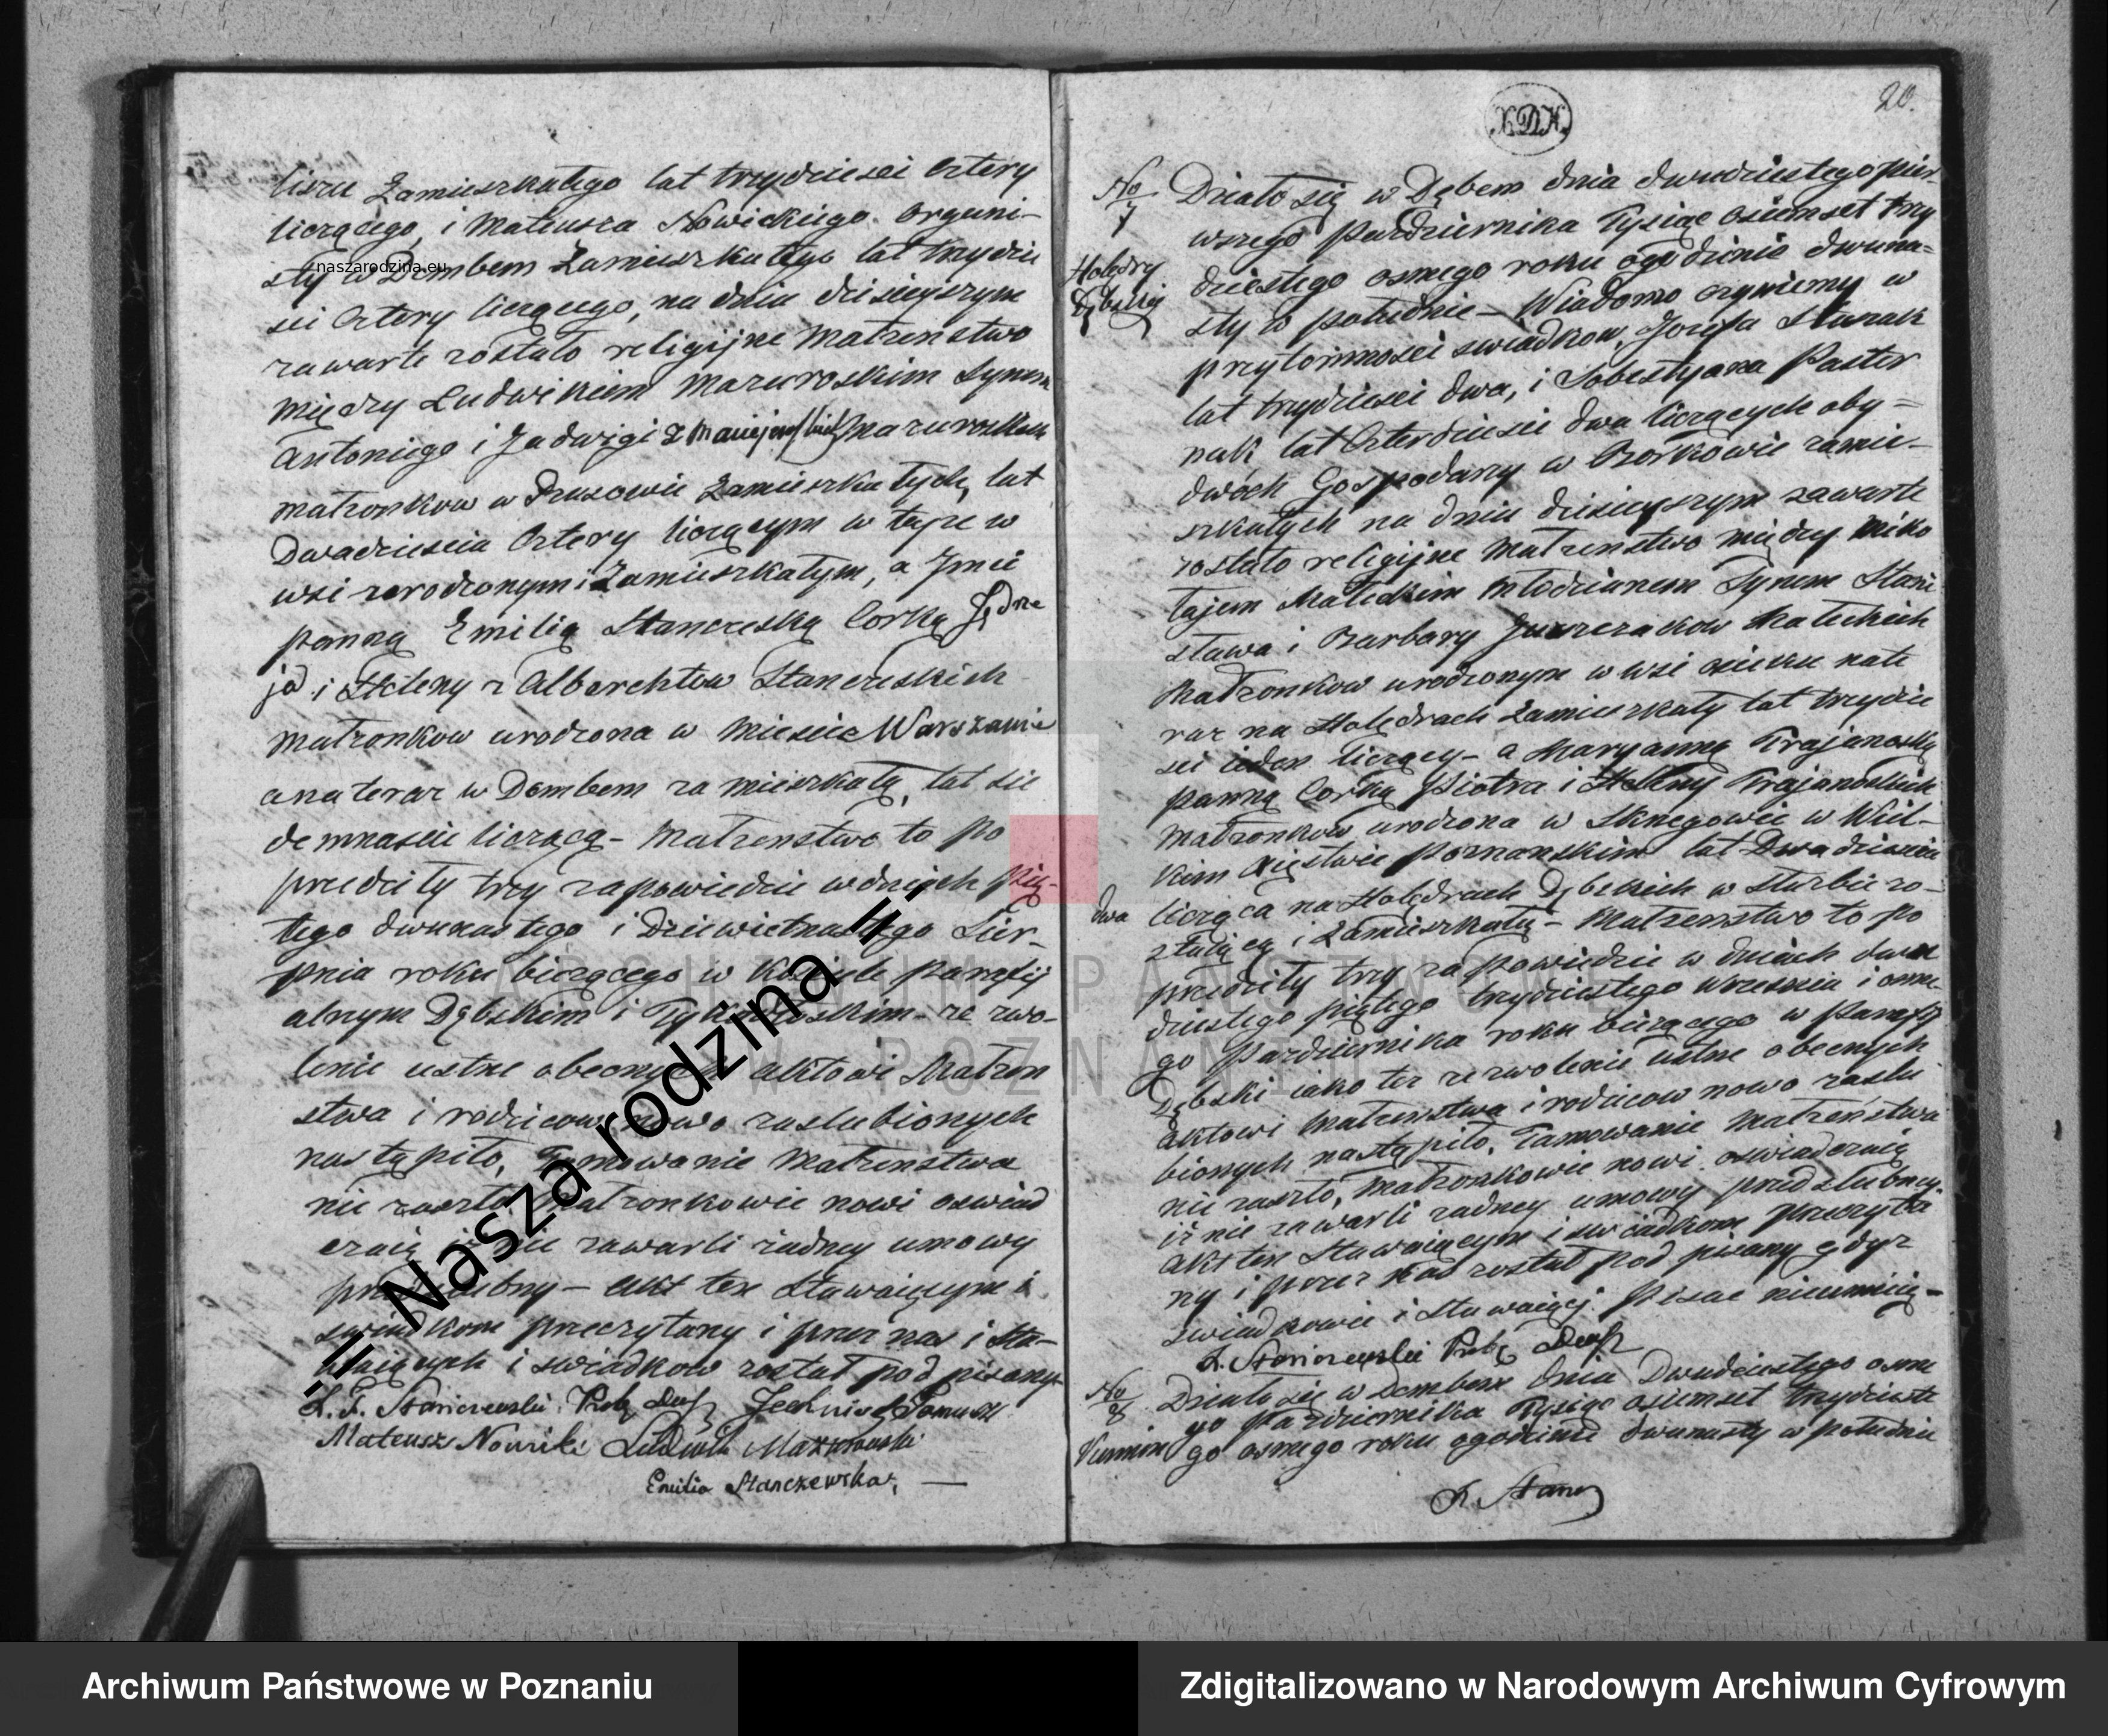 liszu Zamieszkałego lat trzydziesci cztery
liczącego, i Mateusza Nowickiego Organi-
sty w Dembem Zamieszkałego lat trzydzie
sci cztery liczącego, na dniu dzisieyszym
zawarte zostało religijne Małzenstwo
między Ludwikiem Mazuroskim Synem
Antoniego i Jadwigi z Mazuroskich
małzonkow w Zamieszkałych, lat
Dwadziescia cztery liczącym w tejze w
wsi zrodzonym i Zamieszkałym, a Jmci
panną Emilią Stanczeską Corką Jędrze
ja i Heleny z Alberchtow Stanczeskich
małzonkow urodzona w Miescie Warszawie
a na teraz w Dembem zamieszkałą, lat sie
demnascie liczącą - Małzenstwo to po
przedziły trzy zapowiedzie w dniach pią-
tego dwunastego i Dziewietnastego Sier-
pnia roku biezącego w Kosciele parafij
alnym Dębskim i ze zwo-
lenie ustne obecnych aktowi Małzen
stwa i rodzicow nowo zaslubionych
nastąpiło, Tamowanie Małzenstwa
nie zaszło Małzonkowie nowi oswiad
czaią iż nie zawarli żadney umowy
przedslubny - Akt ten Stawaiącym i
swiadkom przeczytany i przez nas i Sta-
waiących i swiadkow został podpisany
Stanczewski Prob.
Mateusz Nowicki Ludwik Mazurowski
Emilia Stanczewska
naszarodzina.eu
-= Nasza rodzina =-
XDK
20.
No 7
Holędry
Dębskie
Działo się w Dębem dnia dwudziestego pier
wszego pazdziernika Tysiąc osiemset trzy
dziestego osmego roku ogodzinie dwuna-
sty w południe - Wiadomo czyniemy w
przytomnosci swiadkow, Jozefa
lat trzydziesci dwa, i Sobestyana Paster
nak lat czterdziesci dwa liczących oby-
dwóch Gospodarzy w Borkowie zamie-
szkałych na dniu dzisieyszym zawarte
zostało religijne Małzenstwo między Miko
łajem Małeckim młodzianem Synem Stani
sława i Barbary Małeckich
Małzonkow urodzonym w wsi na te
raz na Holędrach Zamieszkały lat trzydzie
sci ieden liczący - a Maryanną Trajanoską
panną Corką Piotra i Heleny Trajanoskich
Małzonkow urodzona w w Wiel-
kim xięstwie poznanskim lat Dwadziescia
dwa
licząca na Holędrach Dębskich w słuzbie zo-
staiącą i Zamieszkałą - Małzenstwo to po
przedziły trzy zapowiedzie w dniach dwu
dziestego piątego trzydziestego wrzesnia i osme
go pazdziernika roku biezącego w parafij
Dębski iako tez zezwolenie ustne obecnych
aktowi Małzenstwa i rodzicow nowo zaslu
bionych nastąpiło, Tamowanie Małzeństwa
nie zaszło, Małzonkowie nowi oswiadczaią
iż nie zawarli zadney umowy przedslubney
akt ten Stawaiącym i swiadkom przeczyta
ny i przez nas został podpisany gdyz
swiadkowie i Stawaiący pisac nieumieią -
Stanczewski Prob.
No 8
Działo się w Dembem dnia Dwudziestego osme
go pazdziernika Tysiąc osiemset trzydzieste
go osmego roku ogodzinie dwunasty w południe
ARCHIWUM PAŃSTWOWE
W POZNANIU
Archiwum Państwowe w Poznaniu
Zdigitalizowano w Narodowym Archiwum Cyfrowym